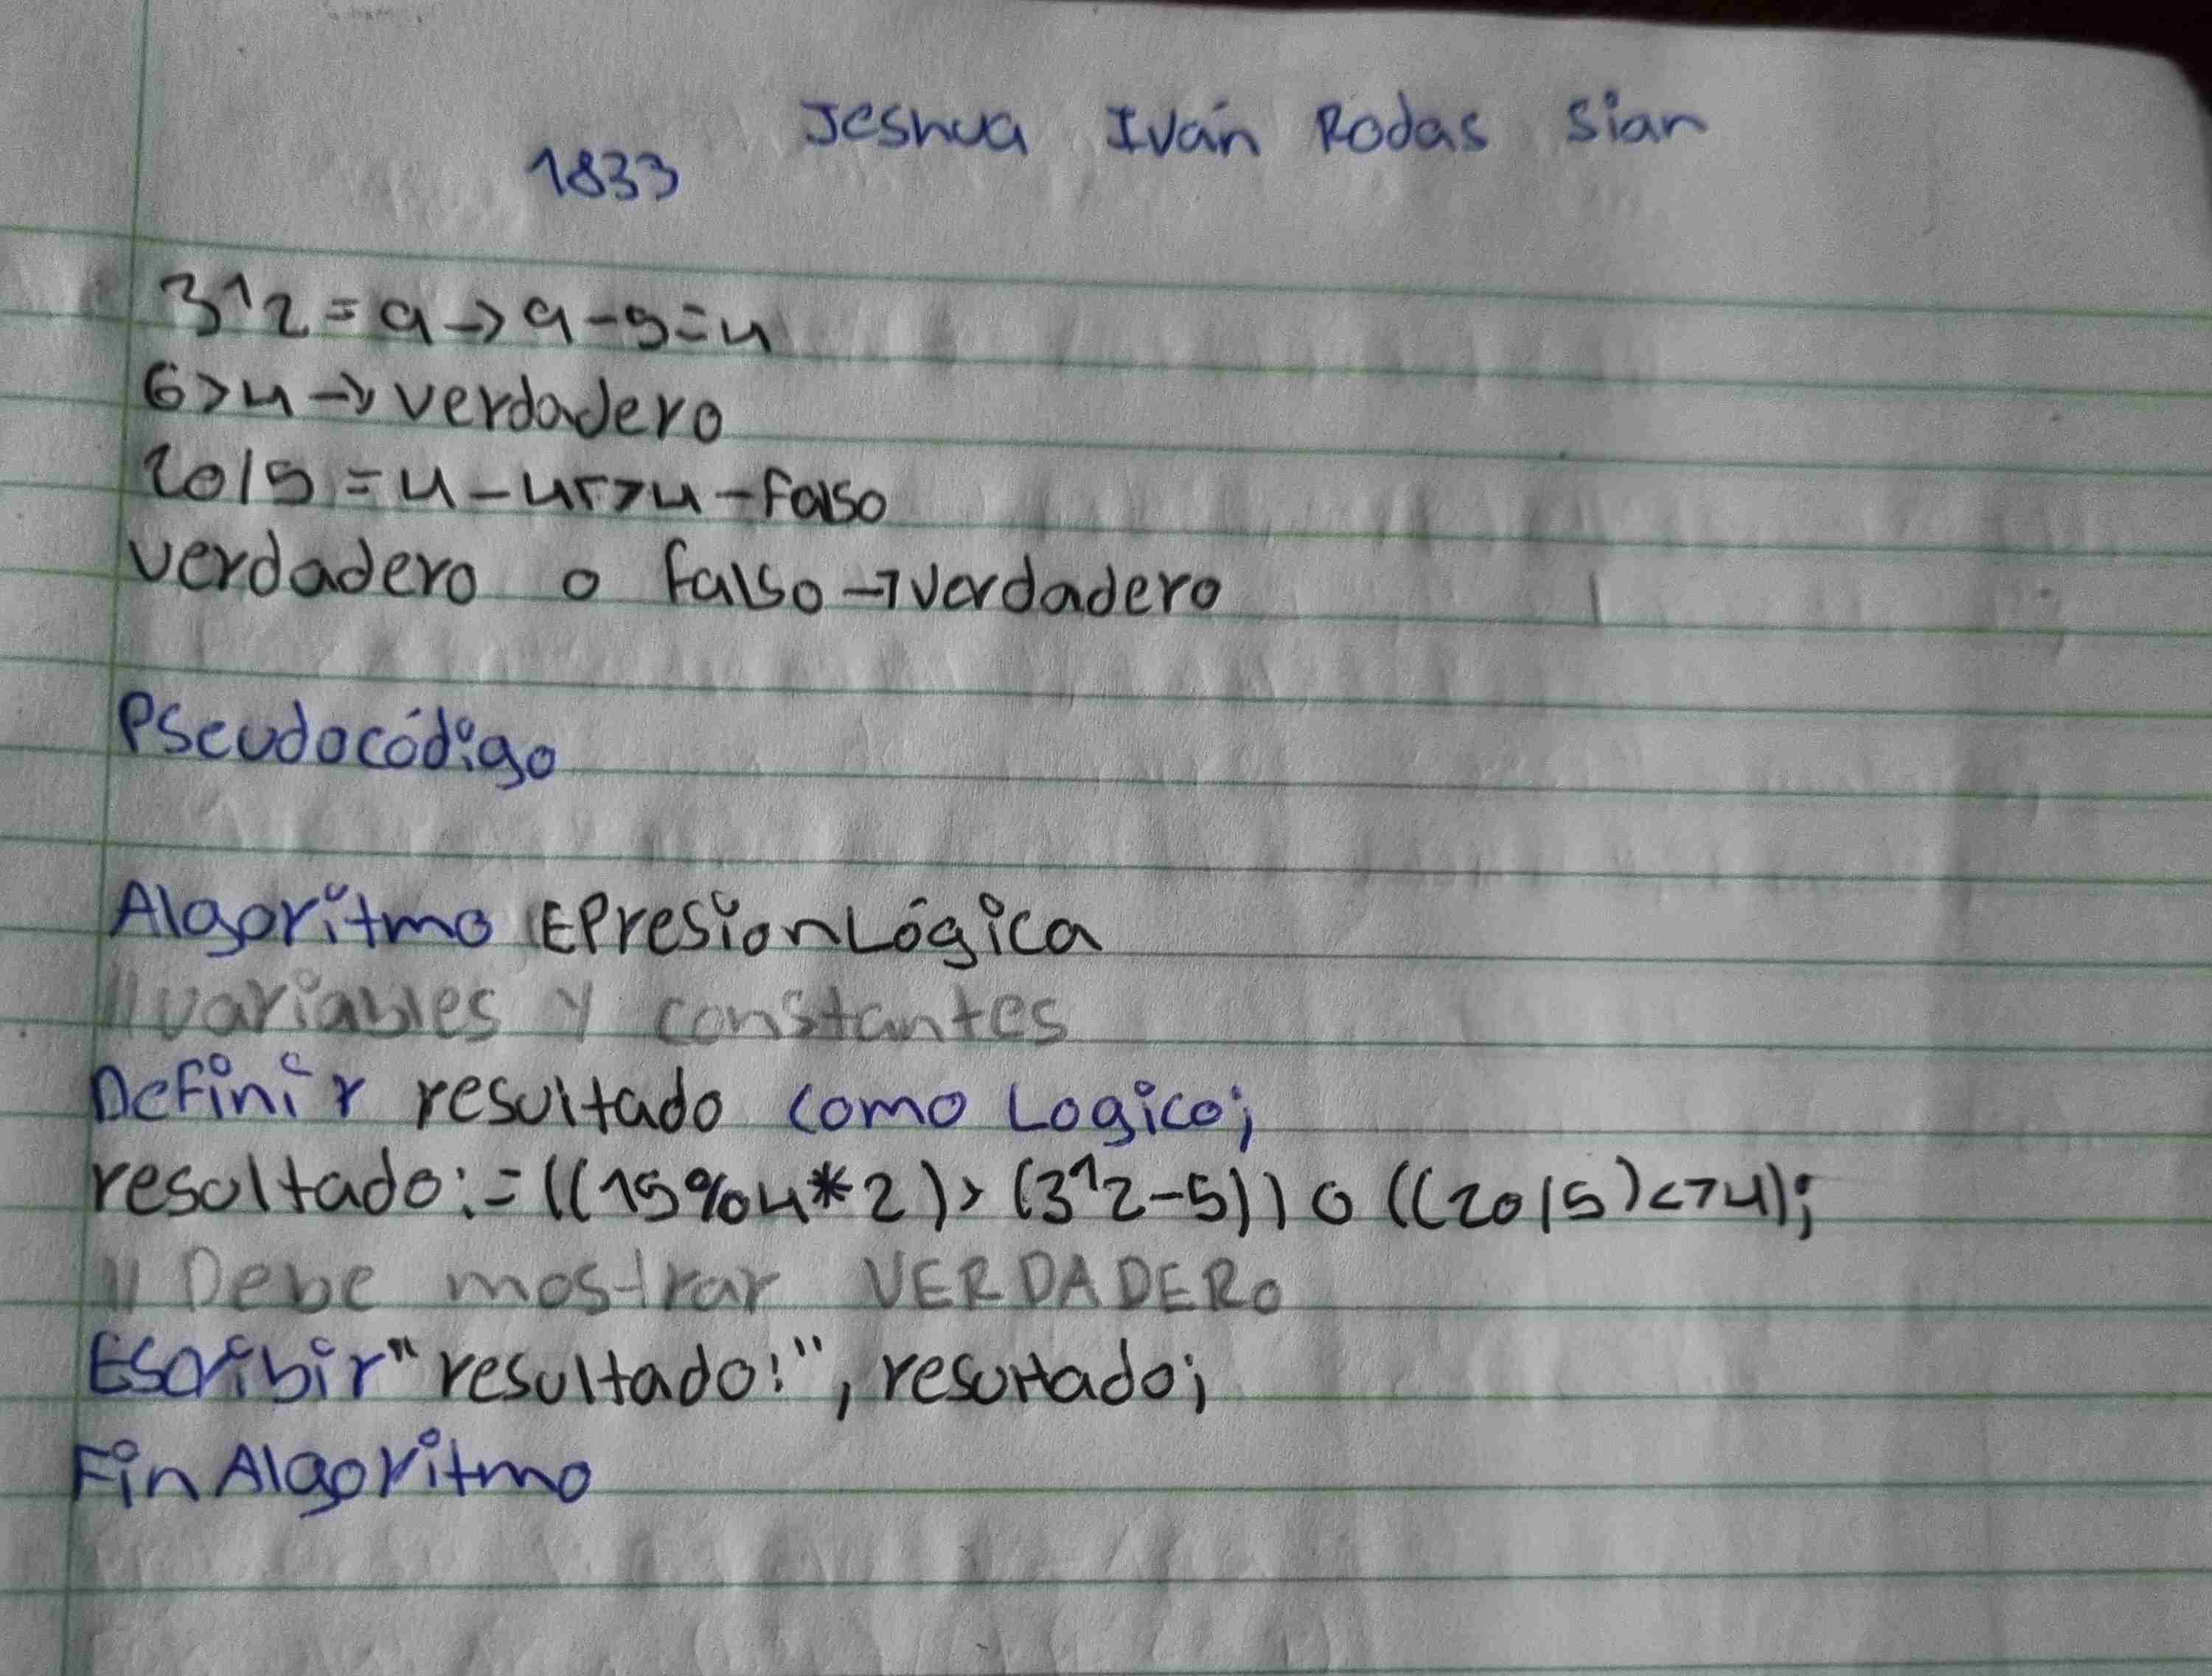 Jeshua Iván Rodas Sian
1833
3^2=9→9-5=4
6>4→verdadero
20/5=4-4<>4-falso
verdadero o falso→verdadero
Pseudocódigo
Algoritmo EPresionLógica
//variables y constantes
Definir resultado como Logico;
resultado:=((15%4*2)>(3^2-5)) o ((20/5)<>4);
// Debe mostrar VERDADERO
Escribir"resultado:", resultado;
FinAlgoritmo